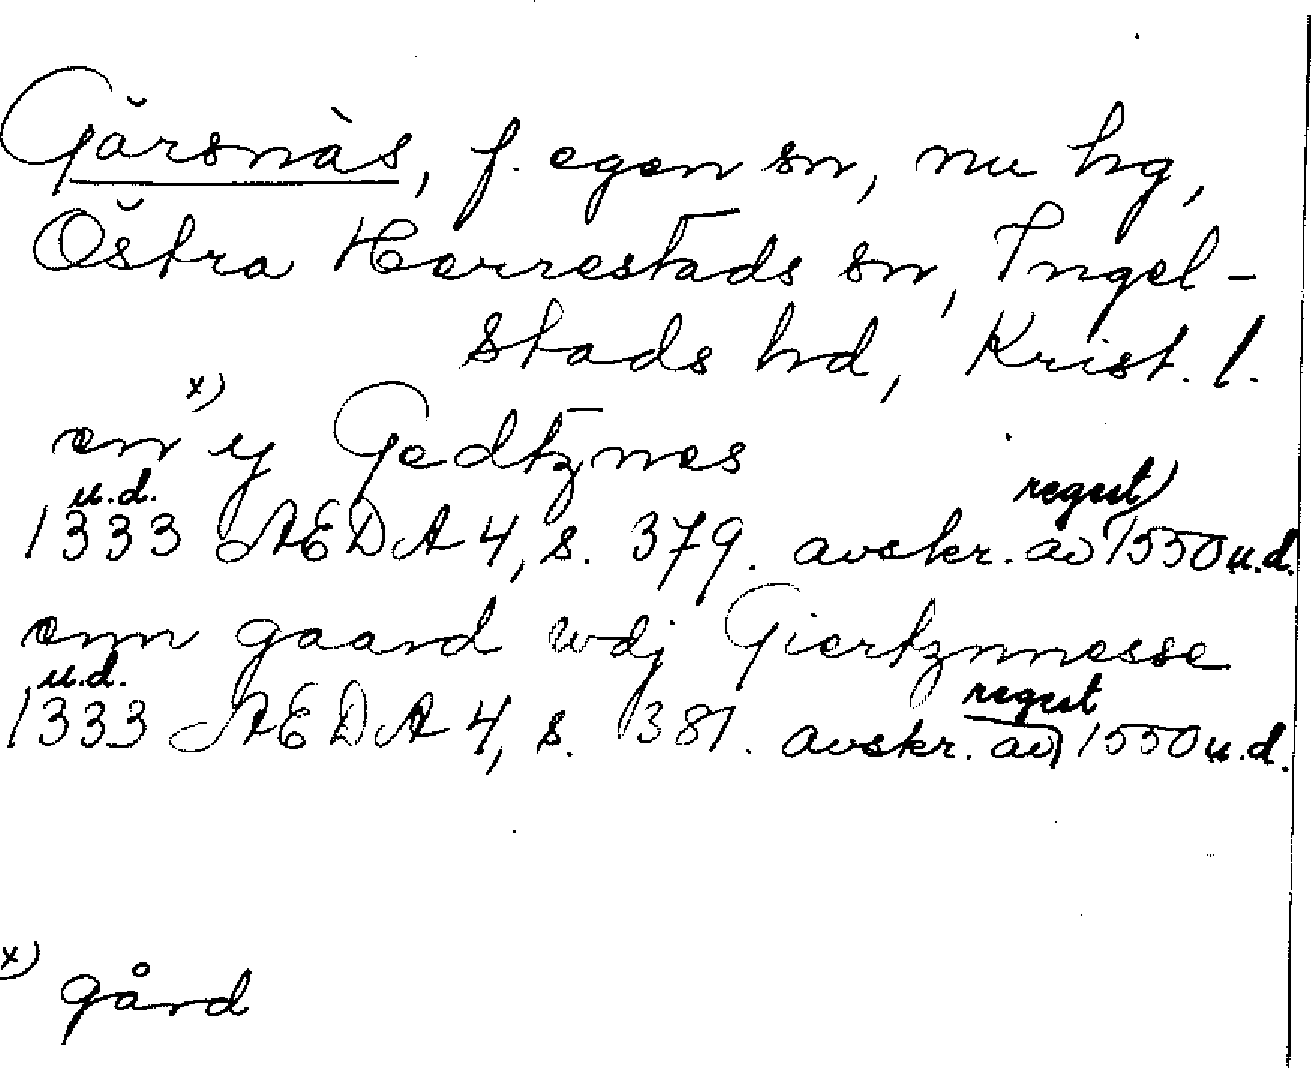 Gärsnäs, f. egen sn, nu hg,
Östra Herrestads sn, Ingel-
stads hd, Krist. l.
en x) y Gedtznes
u.d. regest)
1333 ÆDA 4, s. 379. avskr. av 1550 u.d.
enn gaard wdj Giertznnesse
u.d. regest
1333 ÆDA 4, s. 381. avskr. av) 1550 u.d.
x) gård